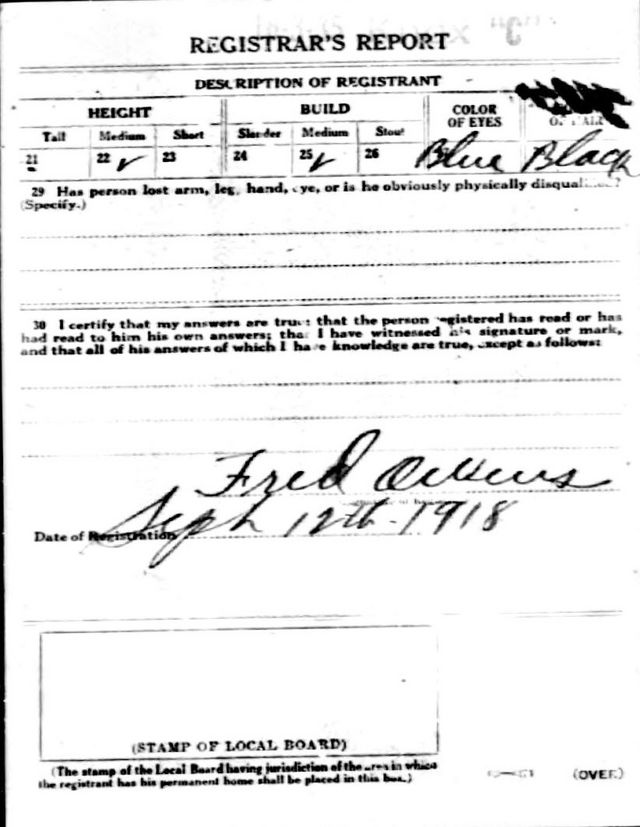 REGISTRAR'S REPORT
DESCRIPTION OF REGISTRANT
HEIGHT BUILD COLOR OF EYES
Tall Medium Short Slender Medium Stout
21 22 ✓ 23 24 25 ✓ 26 Blue Black
29 Has person lost arm, leg, hand, eye, or is he obviously physically disqualified?
(Specify.)
30 I certify that my answers are true; that the person registered has read or has
had read to him his own answers; that I have witnessed his signature or mark,
and that all of his answers of which I have knowledge are true, except as follows:
Fred
Date of Registration Sept 12th-1918
(STAMP OF LOCAL BOARD)
(The stamp of the Local Board having jurisdiction of the area in which
the registrant has his permanent home shall be placed in this box.)
(OVER)